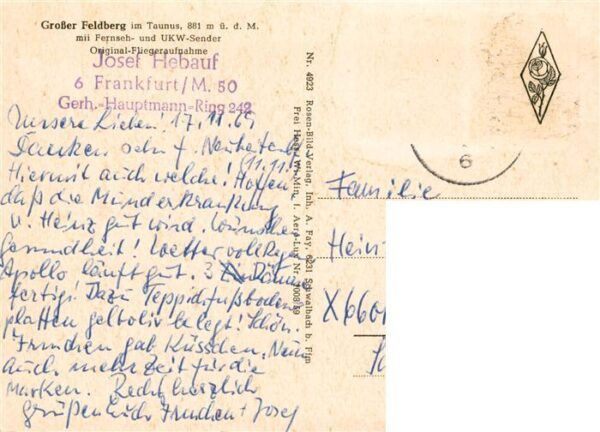 Großer Feldberg im Taunus, 881 m ü. d. M.
mit Fernseh- und UKW-Sender
Original-Fliegeraufnahme
Josef Hebauf
6 Frankfurt/M. 50
Gerh.-Hauptmann-Ring 242
Unsere Lieben! 17.11.69
Danken sehr f.
11.11.
Hiermit auch welche! Hoffen
daß die Munderkrankung
v. Heinz gut wird. Wünschen
Gesundheit! Wetter voll Regen
Apollo läuft gut. 3
fertig! Dazu Teppichfußboden
platten gelboliv belegt! Schön.
Frauchen gab Küsschen. Nun
auch mehr Zeit für die
Marken. Recht herzlich
grüßen Euch Frauchen + Josef
Nr. 4923 Rosen-Bild-Verlag, Inh. A. Fay, 6231 Schwalbach b. Ffm
Frei Hess. Wi. Min. f. Aero-Lux Nr.
6
Familie
Hein
X660